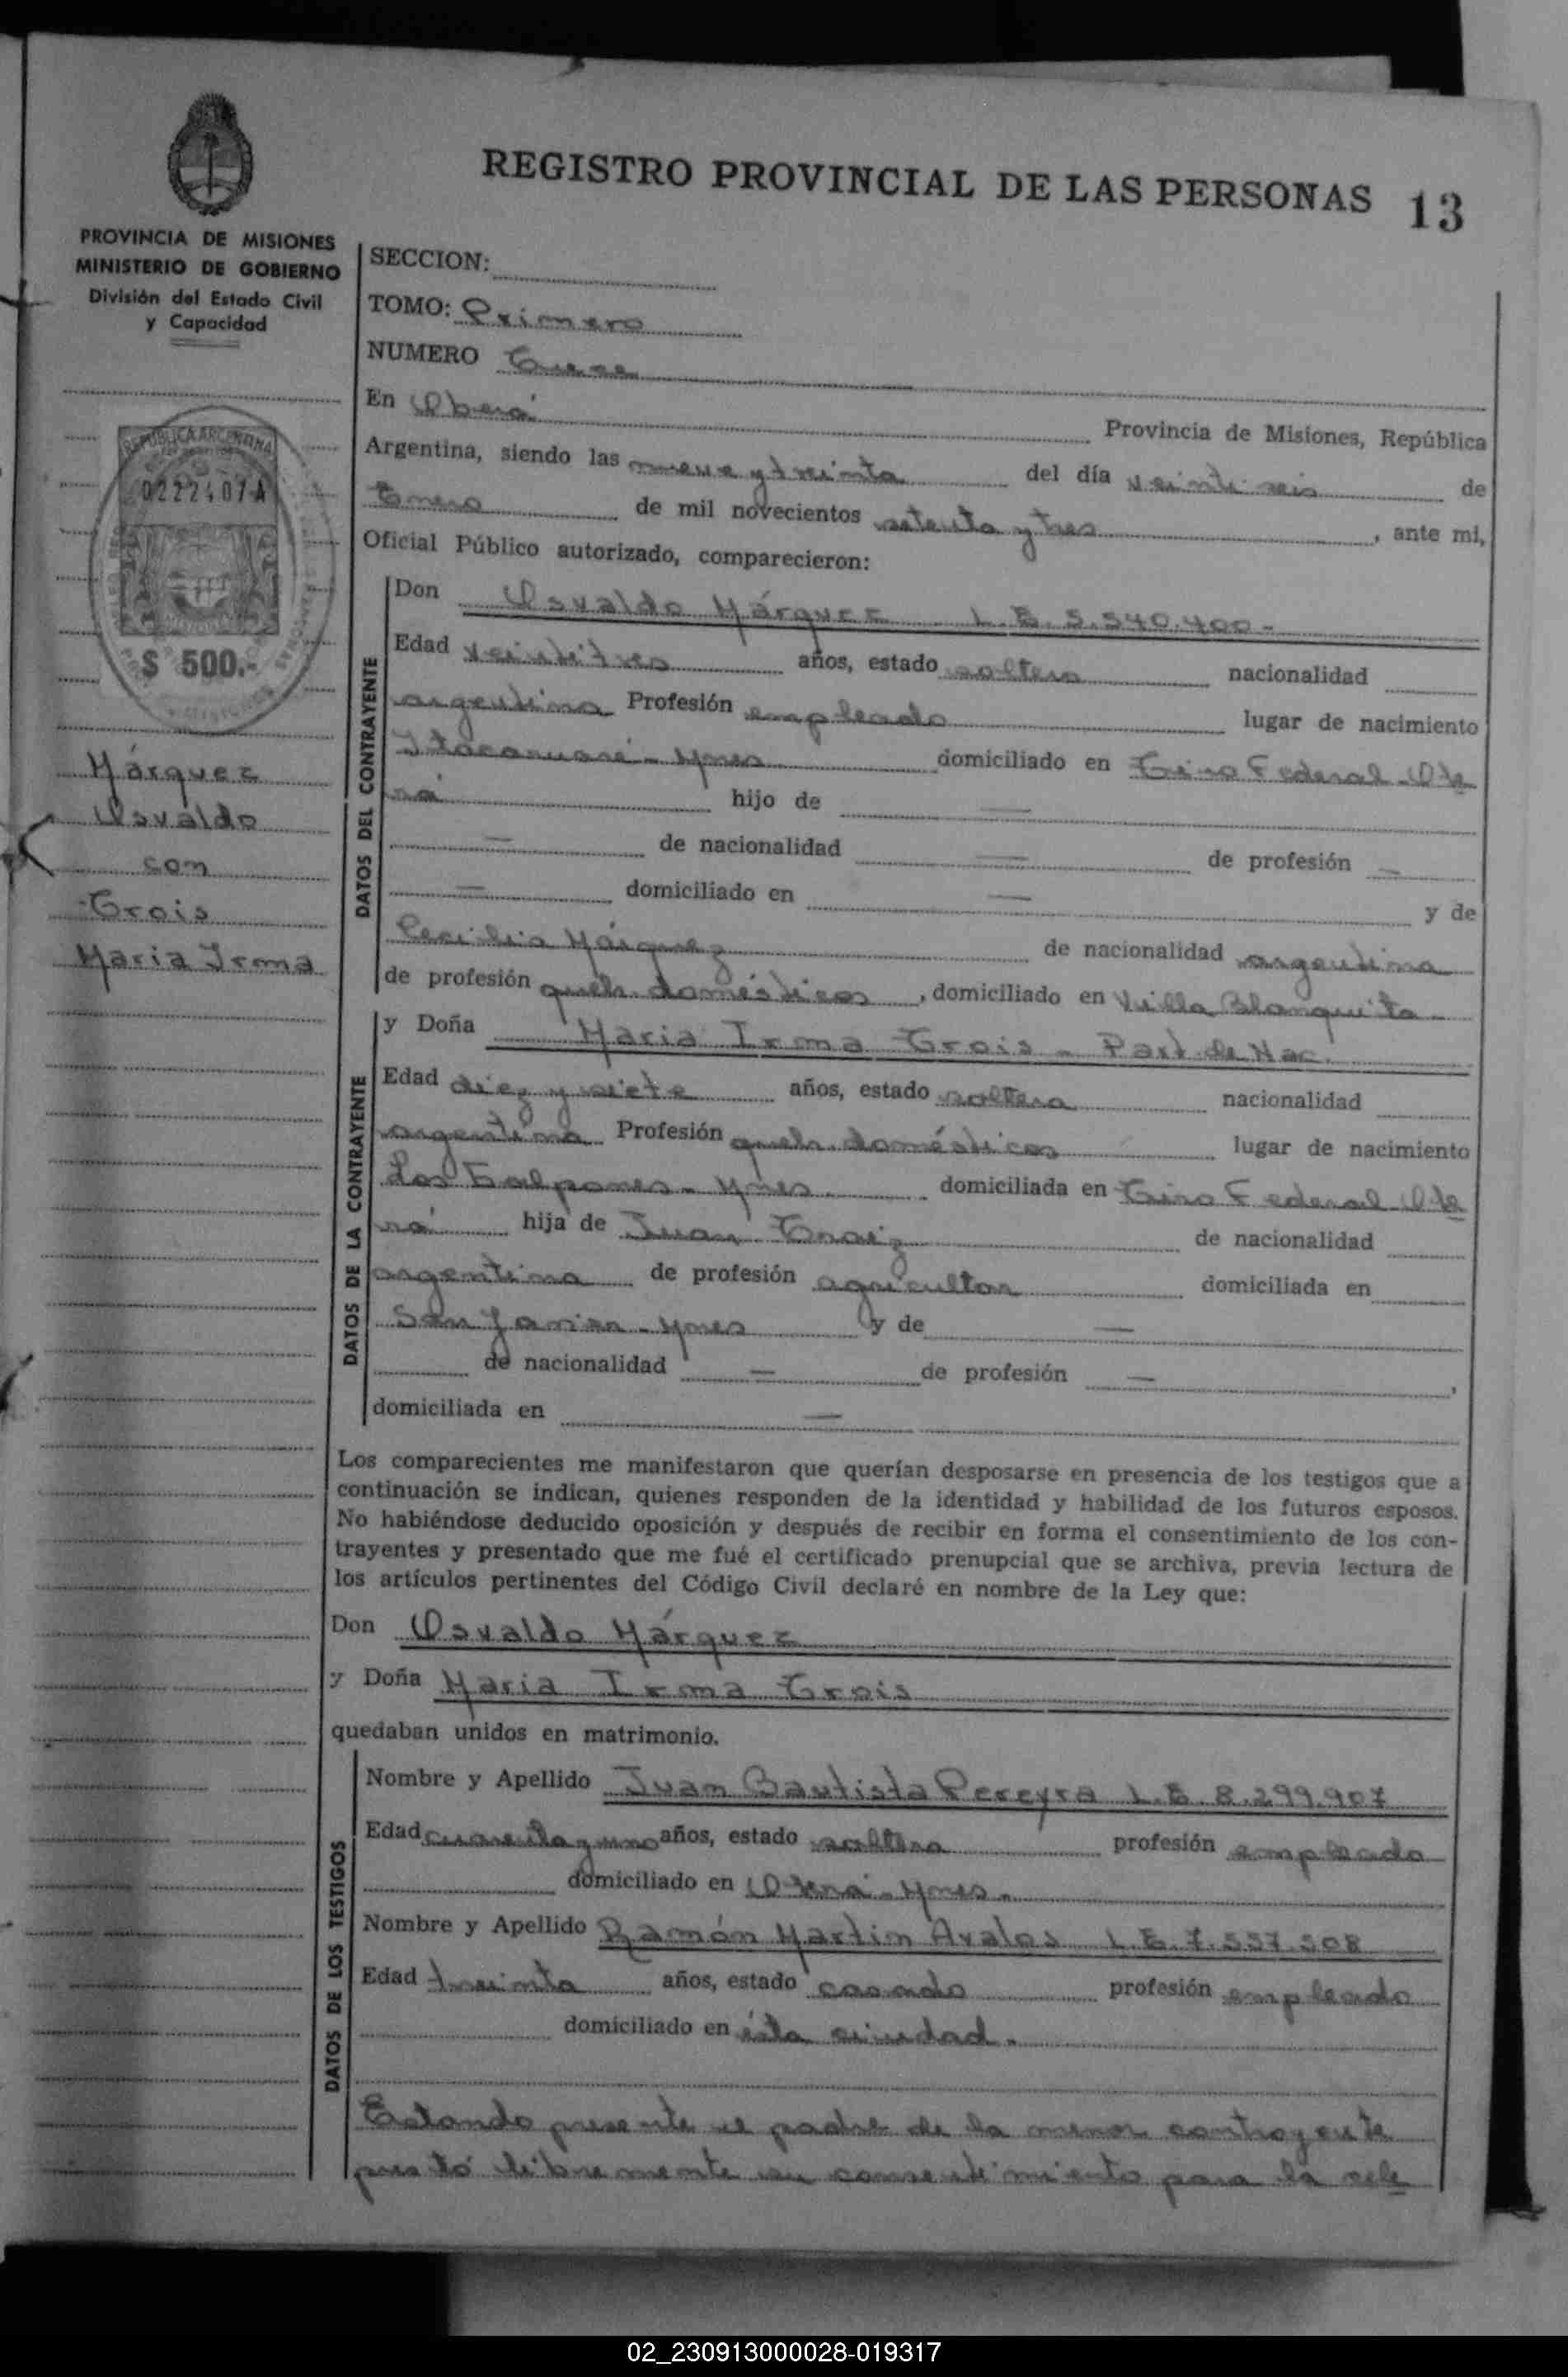 REGISTRO PROVINCIAL DE LAS PERSONAS 13
PROVINCIA DE MISIONES
MINISTERIO DE GOBIERNO
División del Estado Civil
y Capacidad
REPUBLICA ARGENTINA
0222407A
$ 500.-
Márquez
Osvaldo
con
Trois
Maria Irma
SECCION:
TOMO: Primero
NUMERO Trece
En Oberá Provincia de Misiones, República
Argentina, siendo las nueve y treinta del día veintiseis de
Enero de mil novecientos setenta y tres, ante mi,
Oficial Público autorizado, comparecieron:
DATOS DEL CONTRAYENTE
Don Osvaldo Márquez L.E. 5.540.400-
Edad veintitres años, estado soltero nacionalidad
argentina Profesión empleado lugar de nacimiento
Itacaruaré - Mnes domiciliado en Tiro Federal - Obe
rá hijo de —
— de nacionalidad — de profesión —
— domiciliado en — y de
Cecilia Márquez de nacionalidad argentina
de profesión queh. domésticos, domiciliado en Villa Blanquita
DATOS DE LA CONTRAYENTE
y Doña Maria Irma Trois - Part. de Nac.
Edad diez y siete años, estado soltera nacionalidad
argentina Profesión queh. domésticos lugar de nacimiento
Los Galpones - Mnes. domiciliada en Tiro Federal - Obe
rá hija de Juan Troiz de nacionalidad
argentina de profesión agricultor domiciliada en
San Javier - Mnes y de —
de nacionalidad — de profesión —,
domiciliada en —
Los comparecientes me manifestaron que querían desposarse en presencia de los testigos que a
continuación se indican, quienes responden de la identidad y habilidad de los futuros esposos.
No habiéndose deducido oposición y después de recibir en forma el consentimiento de los con-
trayentes y presentado que me fué el certificado prenupcial que se archiva, previa lectura de
los artículos pertinentes del Código Civil declaré en nombre de la Ley que:
Don Osvaldo Márquez
y Doña Maria Irma Trois
quedaban unidos en matrimonio.
DATOS DE LOS TESTIGOS
Nombre y Apellido Juan Bautista Pereyra L.E. 8.299.907
Edad cuarenta y uno años, estado soltero profesión empleado
domiciliado en Oberá - Mnes.
Nombre y Apellido Ramón Martin Avalos L.E. 7.557.508
Edad treinta años, estado casado profesión empleado
domiciliado en ésta ciudad.
Estando presente el padre de la menor contrayente
prestó libremente su consentimiento para la cele
02_230913000028-019317